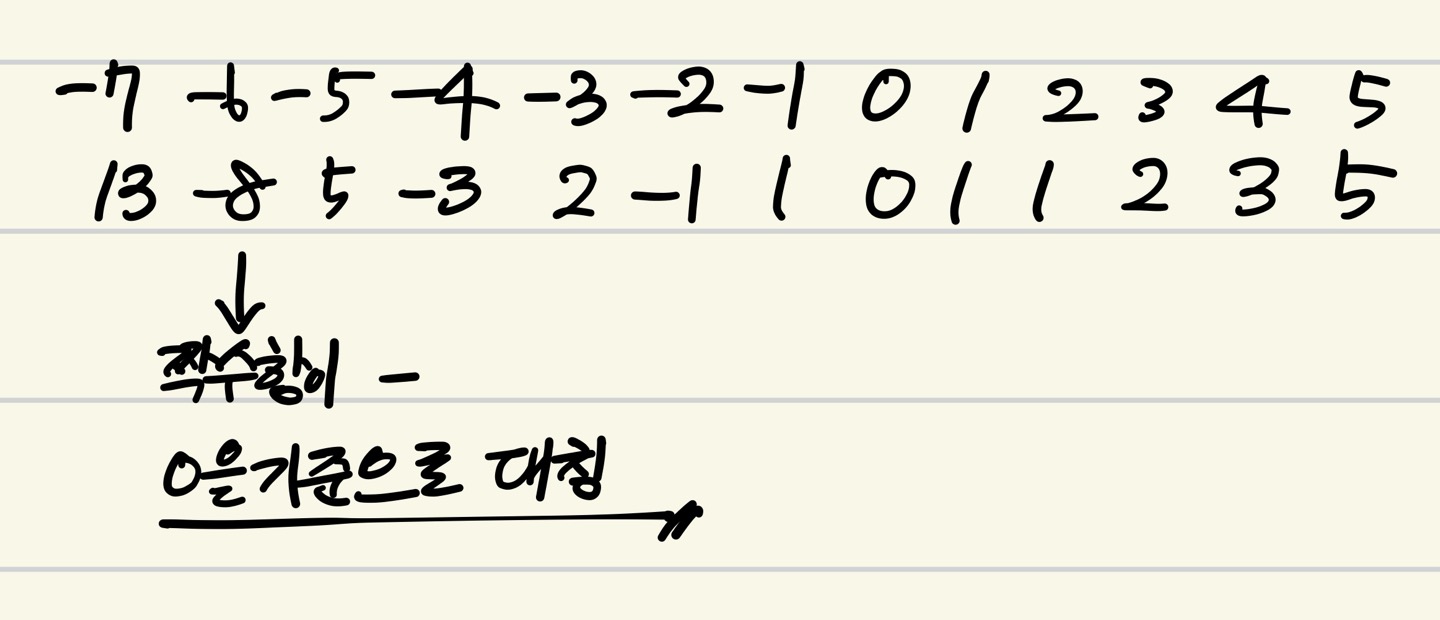 -7 -6 -5 -4 -3 -2 -1 0 1 2 3 4 5
13 -8 5 -3 2 -1 1 0 1 1 2 3 5
↓
짝수항이 -
0을기준으로 대칭